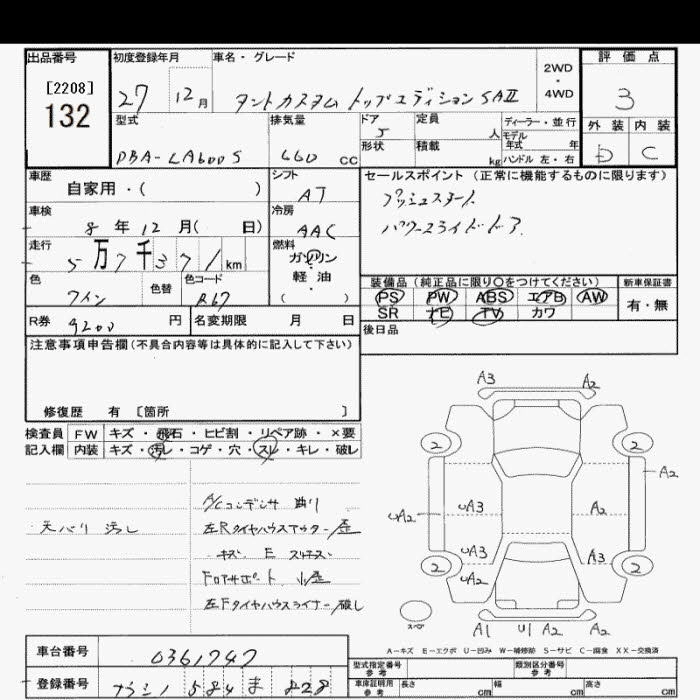 出品番号 初度登録年月 車名・グレード 評価点
[2208] 2WD
132 27 12月 タントカスタム トップエディションSAⅡ ・4WD 3
型式 排気量 ドア 定員 ディーラー・並行 外装 内装
5 人 モデル年式 年
DBA-LA600S 660 cc 形状 積載 kg ハンドル 左・右 D C
車歴 シフト セールスポイント(正常に機能するものに限ります)
自家用・( ) AT プッシュスタート
車検 冷房 パワースライドドア
8年12月( 日) AAC
走行 燃料
5万7千371km ガソリン
色 色替 色コード 軽・油 装備品(純正品に限り○をつけてください) 新車保証書
ワイン R67 ( ) PS PW ABS エアB AW 有・無
R券 9200円 名変期限 月 日 SR ナビ TV カワ
後日品
注意事項申告欄(不具合内容等は具体的に記入して下さい)
修復歴 有 [箇所 ]
検査員 FW キズ・飛石・ヒビ割・リペア跡・×要
記入欄 内装 キズ・汚レ・コゲ・穴・スレ・キレ・破レ
A/Cコンデンサ 曲り
天バリ 汚レ 左Rタイヤハウスアウター/歪
キズ E
Fロアサポート 小歪
左Fタイヤハウスライナー/破レ
A3 A2
2 2
A2
uA3 A2
uA2
uA3 A3
2 uA2 2
スペア A1 U1 A2 A2
A-キズ E-エクボ U-凹み W-補修跡 S-サビ C-腐食 XX-交換済
車台番号 0361747 型式指定番号 参考 類別区分番号 参考
登録番号 584 ま 828 車庫証明用 参考 長さ cm 幅 cm 高さ cm